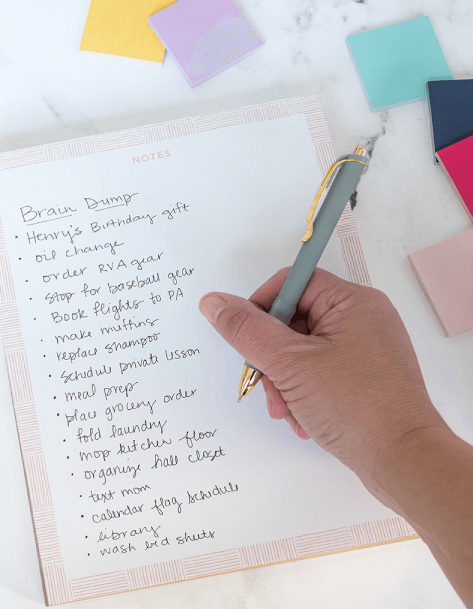 NOTES
Brain Dump
• Henry's Birthday gift
• oil change
• order RVA gear
• Stop for baseball gear
• Book flights to PA
• make muffins
• replace shampoo
• schedule private lesson
• meal prep
• place grocery order
• fold laundry
• mop kitchen floor
• organize hall closet
• text mom
• calendar flag schedule
• library
• wash bed sheets